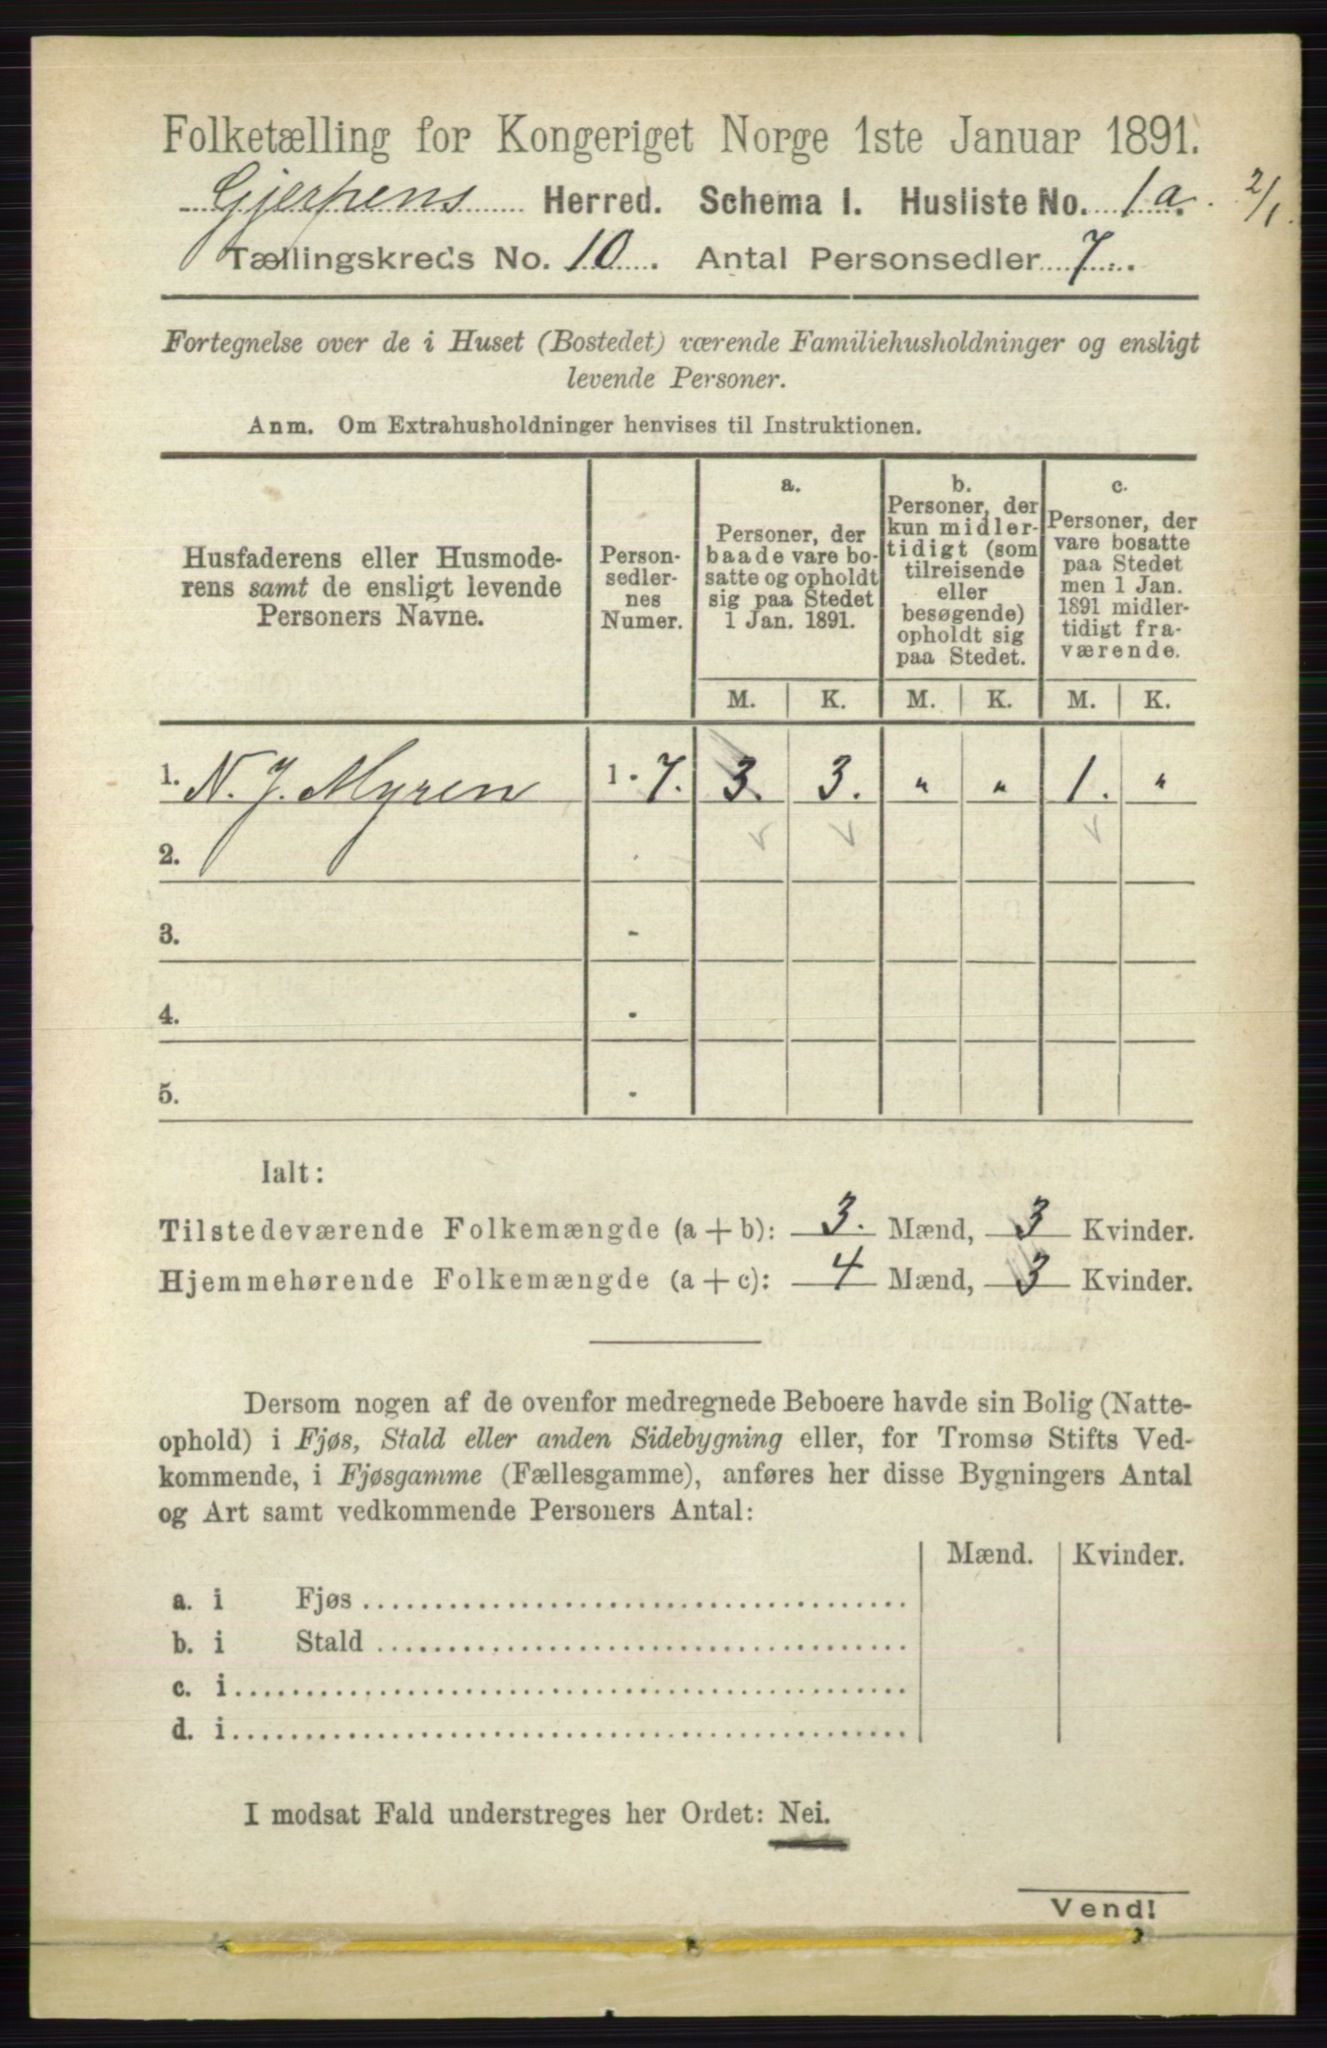 Folketælling for Kongeriget Norge 1ste Januar 1891.
Gjerpens Herred. Schema I. Husliste No. 1a. 2/1
Tællingskreds No. 10. Antal Personsedler 7.
Fortegnelse over de i Huset (Bostedet) værende Familiehusholdninger og ensligt
levende Personer.
Anm. Om Extrahusholdninger henvises til Instruktionen.
Husfaderens eller Husmode-
rens samt de ensligt levende
Personers Navne.
Person-
sedler-
nes
Numer.
a.
Personer, der
baade vare bo-
satte og opholdt
sig paa Stedet
1 Jan. 1891.
b.
Personer, der
kun midler-
tidigt (som
tilreisende
eller
besøgende)
opholdt sig
paa Stedet.
c.
Personer, der
vare bosatte
paa Stedet
men 1 Jan.
1891 midler-
tidigt fra-
værende.
M. K. M. K. M. K.
1. N. J. Myren 1 - 7. 3. 3. " " 1. "
2.
3. -
4. -
5. -
Ialt:
Tilstedeværende Folkemængde (a + b): 3. Mænd, 3 Kvinder.
Hjemmehørende Folkemængde (a + c): 4 Mænd, 3 Kvinder.
Dersom nogen af de ovenfor medregnede Beboere havde sin Bolig (Natte-
ophold) i Fjøs, Stald eller anden Sidebygning eller, for Tromsø Stifts Ved-
kommende, i Fjøsgamme (Fællesgamme), anføres her disse Bygningers Antal
og Art samt vedkommende Personers Antal:
Mænd. Kvinder.
a. i Fjøs
b. i Stald
c. i
d. i
I modsat Fald understreges her Ordet: Nei.
Vend!